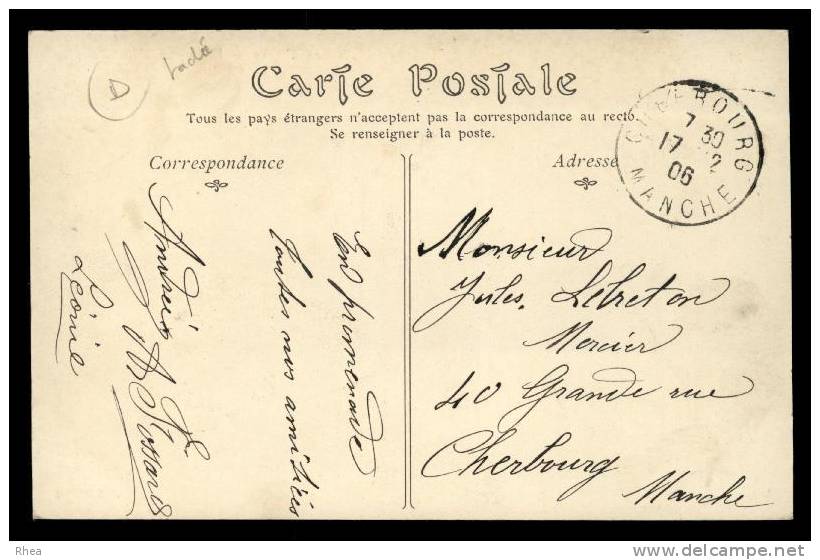 D
Carte Postale
Tous les pays étrangers n'acceptent pas la correspondance au recto.
Se renseigner à la poste.
Correspondance
Adresse
CHERBOURG
7 30
17 12
06
MANCHE
En promenade
toutes nos amitiés
Léonie
Monsieur
Jules Lebreton
Mercier
40 Grande rue
Cherbourg
Manche
Rhea
www.delcampe.net